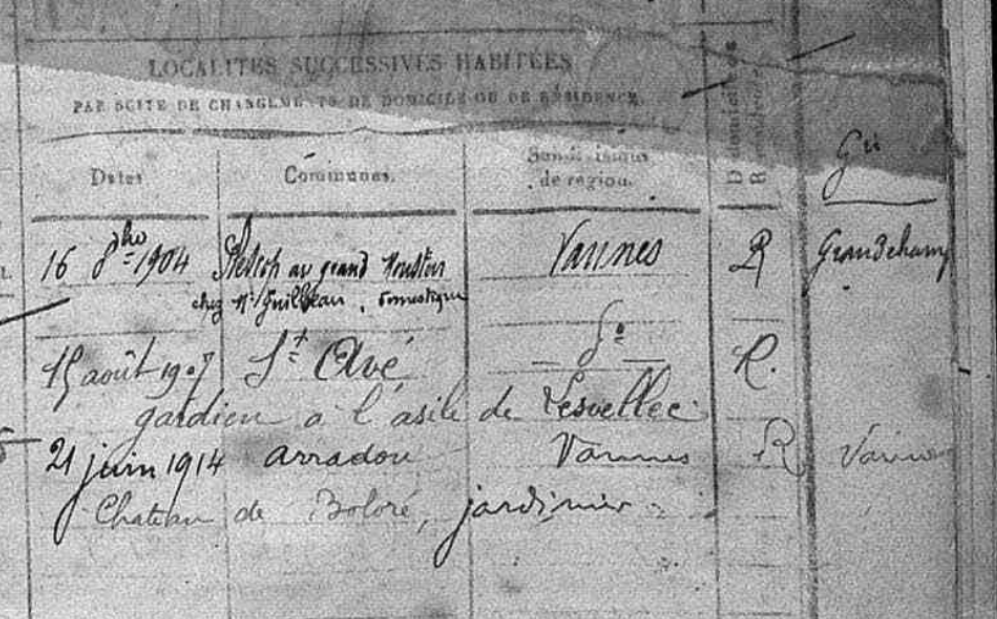 LOCALITÉS SUCCESSIVES HABITÉES
PAR SUITE DE CHANGEMENTS DE DOMICILE OU DE RÉSIDENCE.
Dates
Communes.
Subdivisions de région.
D
R
Gie
16 8bre 1904 au grand Moustoir Vannes R Grandchamp
chez Mr Guilleau, domestique
15 août 1907 St Avé — do — R.
gardien à l'asile de Lesvellec
21 juin 1914 Arradon Vannes R Vannes
Chateau de Boloré, jardinier